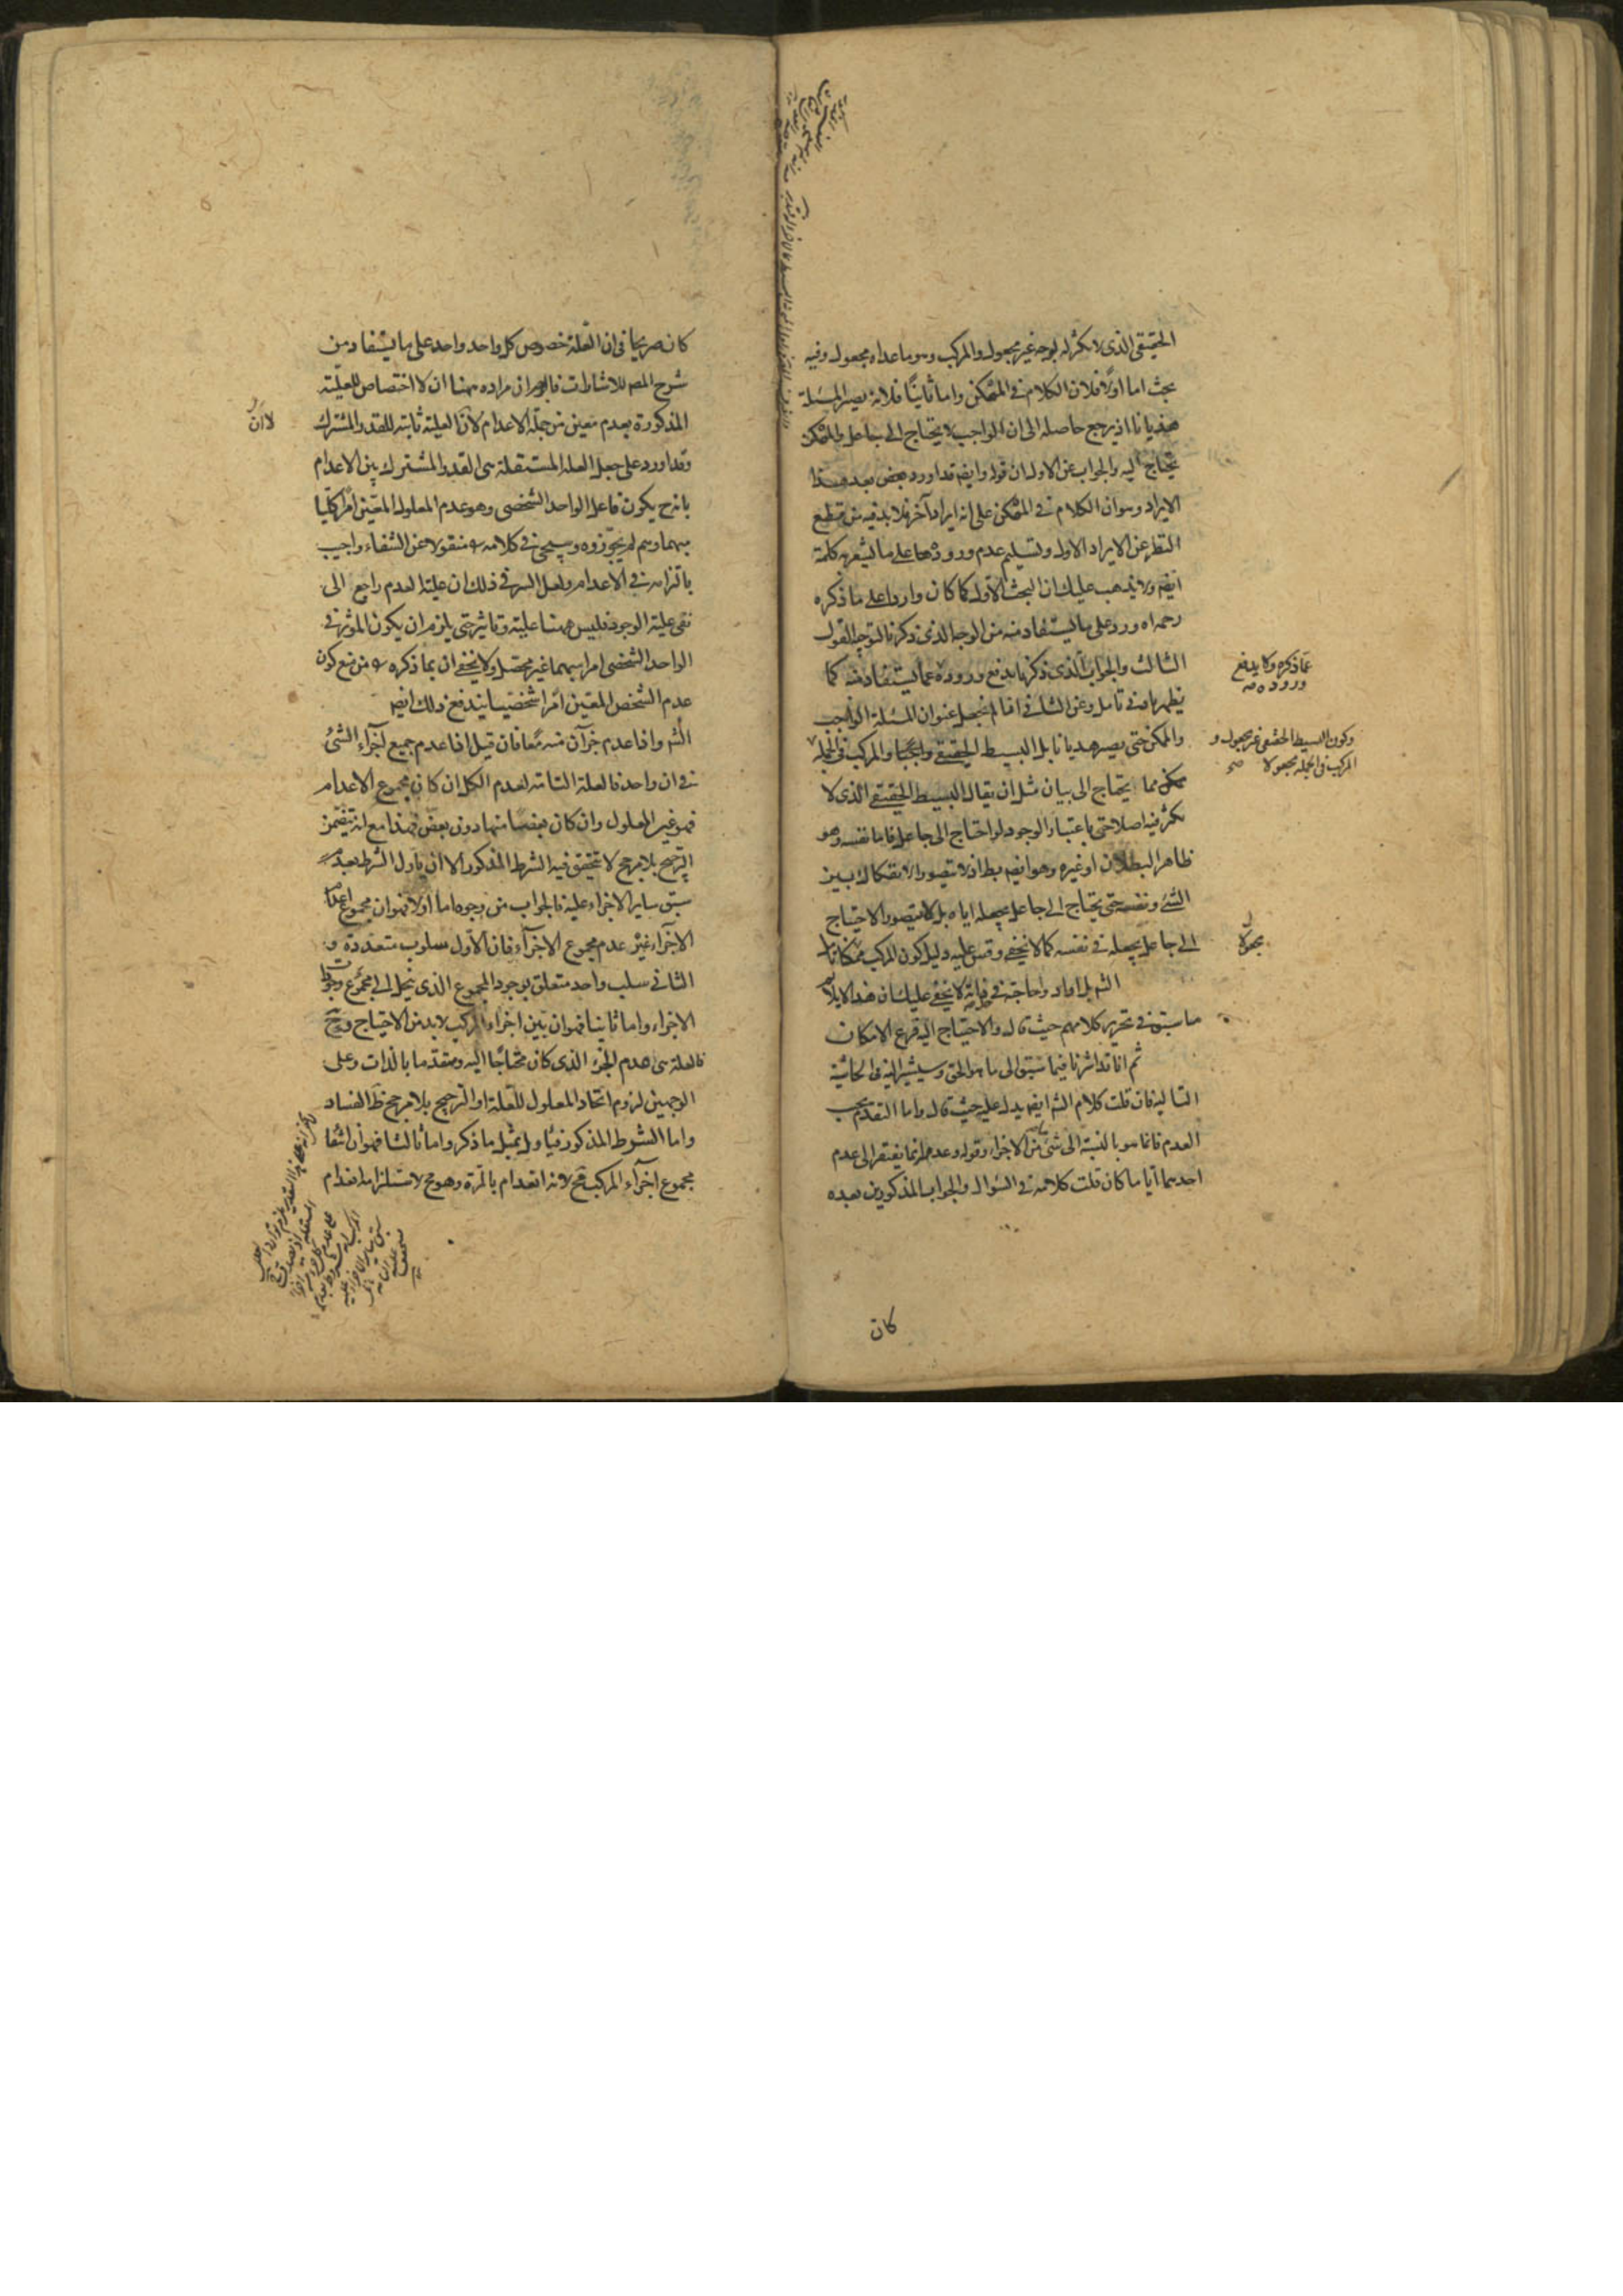 الحقيقي الذي لا تكثر له بوجه غير مجعول والمركب وهو ما عداه مجعول وفيه
بحث اما اولا فلان الكلام في الممكن واما ثانيا فلانه يصير المسئلة
هذيانا اذ يرجع حاصله الى ان الواجب لا يحتاج الى جاعل والممكن
يحتاج اليه والجواب عن الاول ان قوله وايضه قد اورد بعض بعد هذا
الايراد وهو ان الكلام في الممكن على انه ايراد آخر فلا بد فيه من قطع
النظر عن الايراد الاول وتسليم عدم ورودها على ما يشعر به كلمة
ايضه ولا يذهب عليك ان البحث الاول كما كان واردا على ما ذكره
رحمه اه ورد على ما يستفاد منه من الوجه الذي ذكرنا لتوجيه القول
الثالث والجواب الذي ذكرنا يدفع وروده عما يستفاد منه كما
عما ذكره ولا يدفع
وروده صه
يظهر بادنى تامل وعن الثاني انا لم نجعل عنوان المسئلة الواجب
والممكن حتى يصير هذيانا بل البسيط الحقيقي واجبا والمركب في الجملة
وكون البسيط الحقيقي غير مجعول و
المركب في الجملة مجعولا صح
ممكن مما يحتاج الى بيان مثل ان يقال البسيط الحقيقي الذي لا
تكثر فيه اصلا حتى باعتبار الوجود لو احتاج الى جاعل فاما نفسه وهو
ظاهر البطلان او غيره وهو ايضه بط اذ لا يتصور الانفكاك بين
الشئ ونفسه حتى يحتاج الى جاعل يجعله اياه بل لا يتصور الاحتياج
الى جاعل يجعله في نفسه كما لا يخفى وقس عليه دليل كون المركب ممكنا
مجعولا
الشه بل اواد واحاجة في لا يخفى عليك ان هذا
ما سبق في تحرير كلامهم حيث قال والاحتياج اليه فرع الامكان
ثم انا قد اشرنا فيما سبق الى ما هو الحق وسيشير اليه في الحاشية
التالية فان قلت كلام الشه ايضه يدل عليه حيث قال واما التقدم بحسب
العدم فانما هو بالنسبة الى شئ من الاجزاء وقوله وعدمه انما يفتقر الى عدم
احدهما ايا ما كان قلت كلامه في السؤال والجواب المذكورين بعده
كان
كان صريحا في ان العلة خصوص كل واحد واحد على ما يستفاد من
شرح المص للاشارات فالجواب ان مراده ههنا ان لا اختصاص للعلية
المذكورة بعدم معين من جملة الاعدام لان العلية ثابتة للقدر المشترك
لا ان
وقد اورد على جعل العلة المستقلة هي القدر المشترك بين الاعدام
بانه ح يكون فاعل الواحد الشخصي وهو عدم المعلول المعين امرا كليا
مبهما وهم لم يجوزوه وسيجئ في كلامه منقولا عن الشفاء واجيب
بالتزامه في الاعدام ولعل السر في ذلك ان علية العدم راجع الى
نفي علية الوجود فليس ههنا علية وتاثير حتى يلزم ان يكون المؤثر في
الواحد الشخصي امرا مبهما غير محصل ولا يخفى ان بما ذكره من منع كون
عدم الشخص المعين امرا شخصيا يندفع ذلك ايضه
الشه واذا عدم جزآن منه معا فان قيل اذا عدم جميع اجزاء الشئ
في ان واحد فالعلة التامة لعدم الكل ان كان مجموع الاعدام
فهو غير المعلول وان كان بعضا منها دون بعض فهذا مع انه يتضمن
الترجيح بلا مرجح لا تتحقق فيه الشرط المذكور الا ان ياول الشرط بعدم
سبق ساير الاجزاء عليه فالجواب من وجوه اما اولا فهو ان مجموع اعدام
الاجزاء غير عدم مجموع الاجزاء فان الاول سلوب متعددة و
الثاني سلب واحد متعلق بوجود المجموع الذي ينحل الى مجموع وجودات
الاجزاء واما ثانيا فهو ان بين اجزاء المركب لا بد من الاحتياج وح
فالعلة هي عدم الجزء الذي كان محتاجا اليه ومتقدما بالذات وعلى
الوجهين لزوم اتحاد المعلول للعلة او الترجيح بلا مرجح ظ الفساد
واما الشرط المذكور فياول بمثل ما ذكر واما ثالثا فهو ان انتفاء
مجموع اجزاء المركب مح لانه انعدام بالمرة وهو مح لاستلزامه انعدام